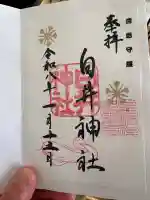 奉拝
白井神社
令和八年一月十五日